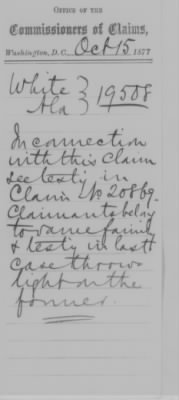 OFFICE OF THE
Commissioners of Claims,
Washington, D.C., Oct 15 1877
White } 19508
Ala }
In connection
with this claim
see testy in
Claim No 20869.
Claimants belong
to same family
& testy in last
case throws
light on the
former.